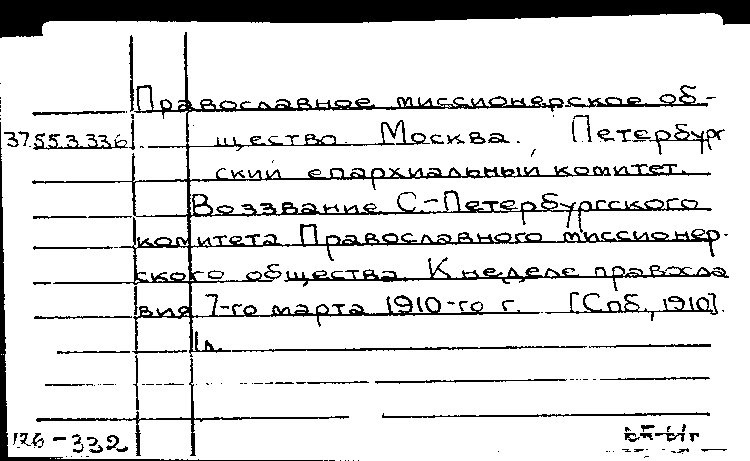 Православное миссионерское об-
37.55.3.336 щество. Москва. Петербург
ский епархиальный комитет.
Воззвание С.-Петербургского
комитета Православного миссионер-
ского общества. К неделе правосла
вия 7-го марта 1910-го г. [Спб., 1910].
1л.
126-332